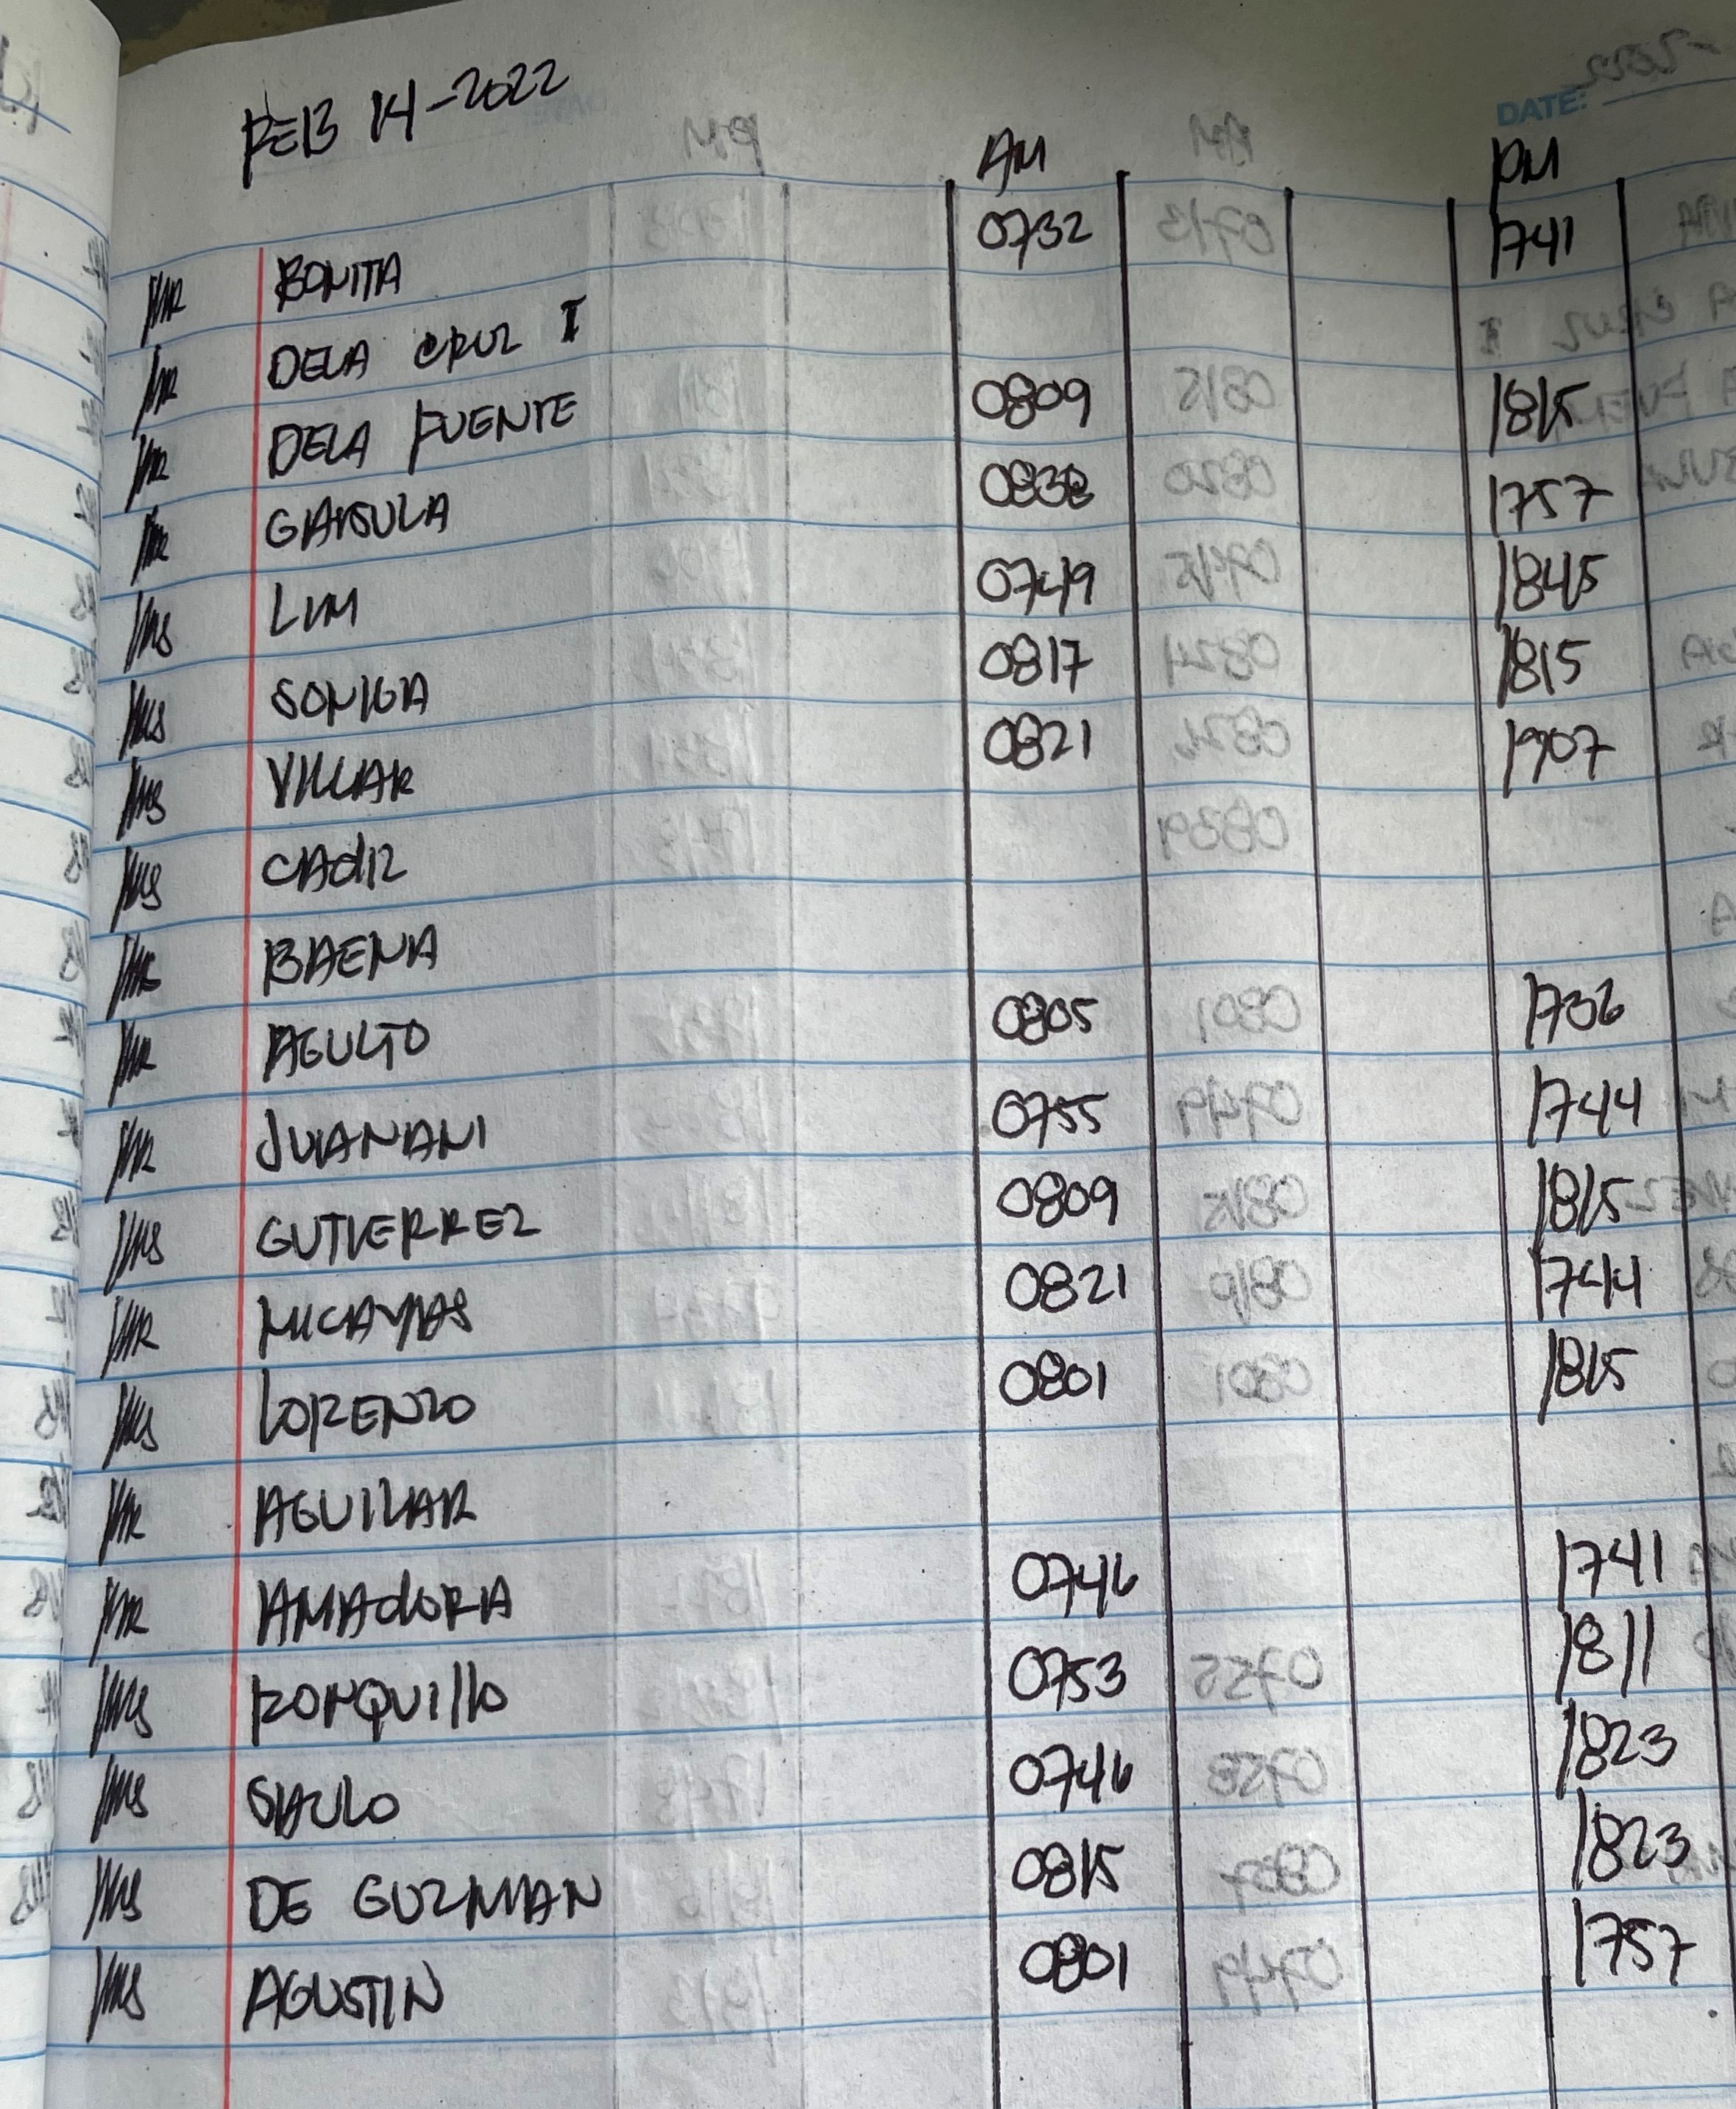 FEB 14-2022
DATE:
AM PM
MR BONITA 0732 1741
MR DELA CRUZ I
MR DELA FUENTE 0809 1815
MR GAYSULA 0838 1757
MS LIM 0749 1845
MS SONIGA 0817 1815
MS VILLAR 0821 1907
MS CADIZ
MR BAENA
MR AGULTO 0805 1736
MR JUANANI 0755 1744
MS GUTIERREZ 0809 1815
MR 0821 1744
MS LORENZO 0801 1815
MR AGUILAR
MR AMADORA 0746 1741
MS RONQUILLO 0753 1811
MS SAULO 0746 1823
MS DE GUZMAN 0815 1823
MS AGUSTIN 0801 1757